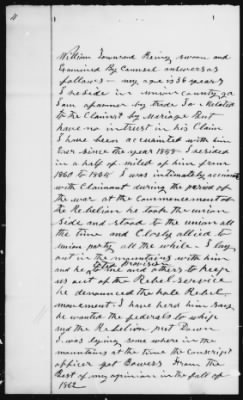 William Townsend being sworn and
Examined By Counsel answers as
follows - my age is 56 years
I reside in union county ga
I am a farmer by trade I am Related
to the Claimant by Mariage But
have no intrust in his Claim
I have been accuainted with him
Ever since the year 1848 I resided
in a half of miled of him from
1860 to 1865 I was intimately accuant
with Claimant during the period of
the war at the Commencement of
the Rebelion he took the union
side and stood to the union all
the time and Closly allied to
union party all the while I lay
out in the mountains with him
and he fed provison to me and others to keep
us out of the Rebel service
he denounced the hole Rebel
movement I have herd him say
he wanted the federals to whip
and the Rebelion put Down
I was lying some where in the
mountains at the time the conscript
officer got Bowers from the
Best of my opinion in the fall of
1862